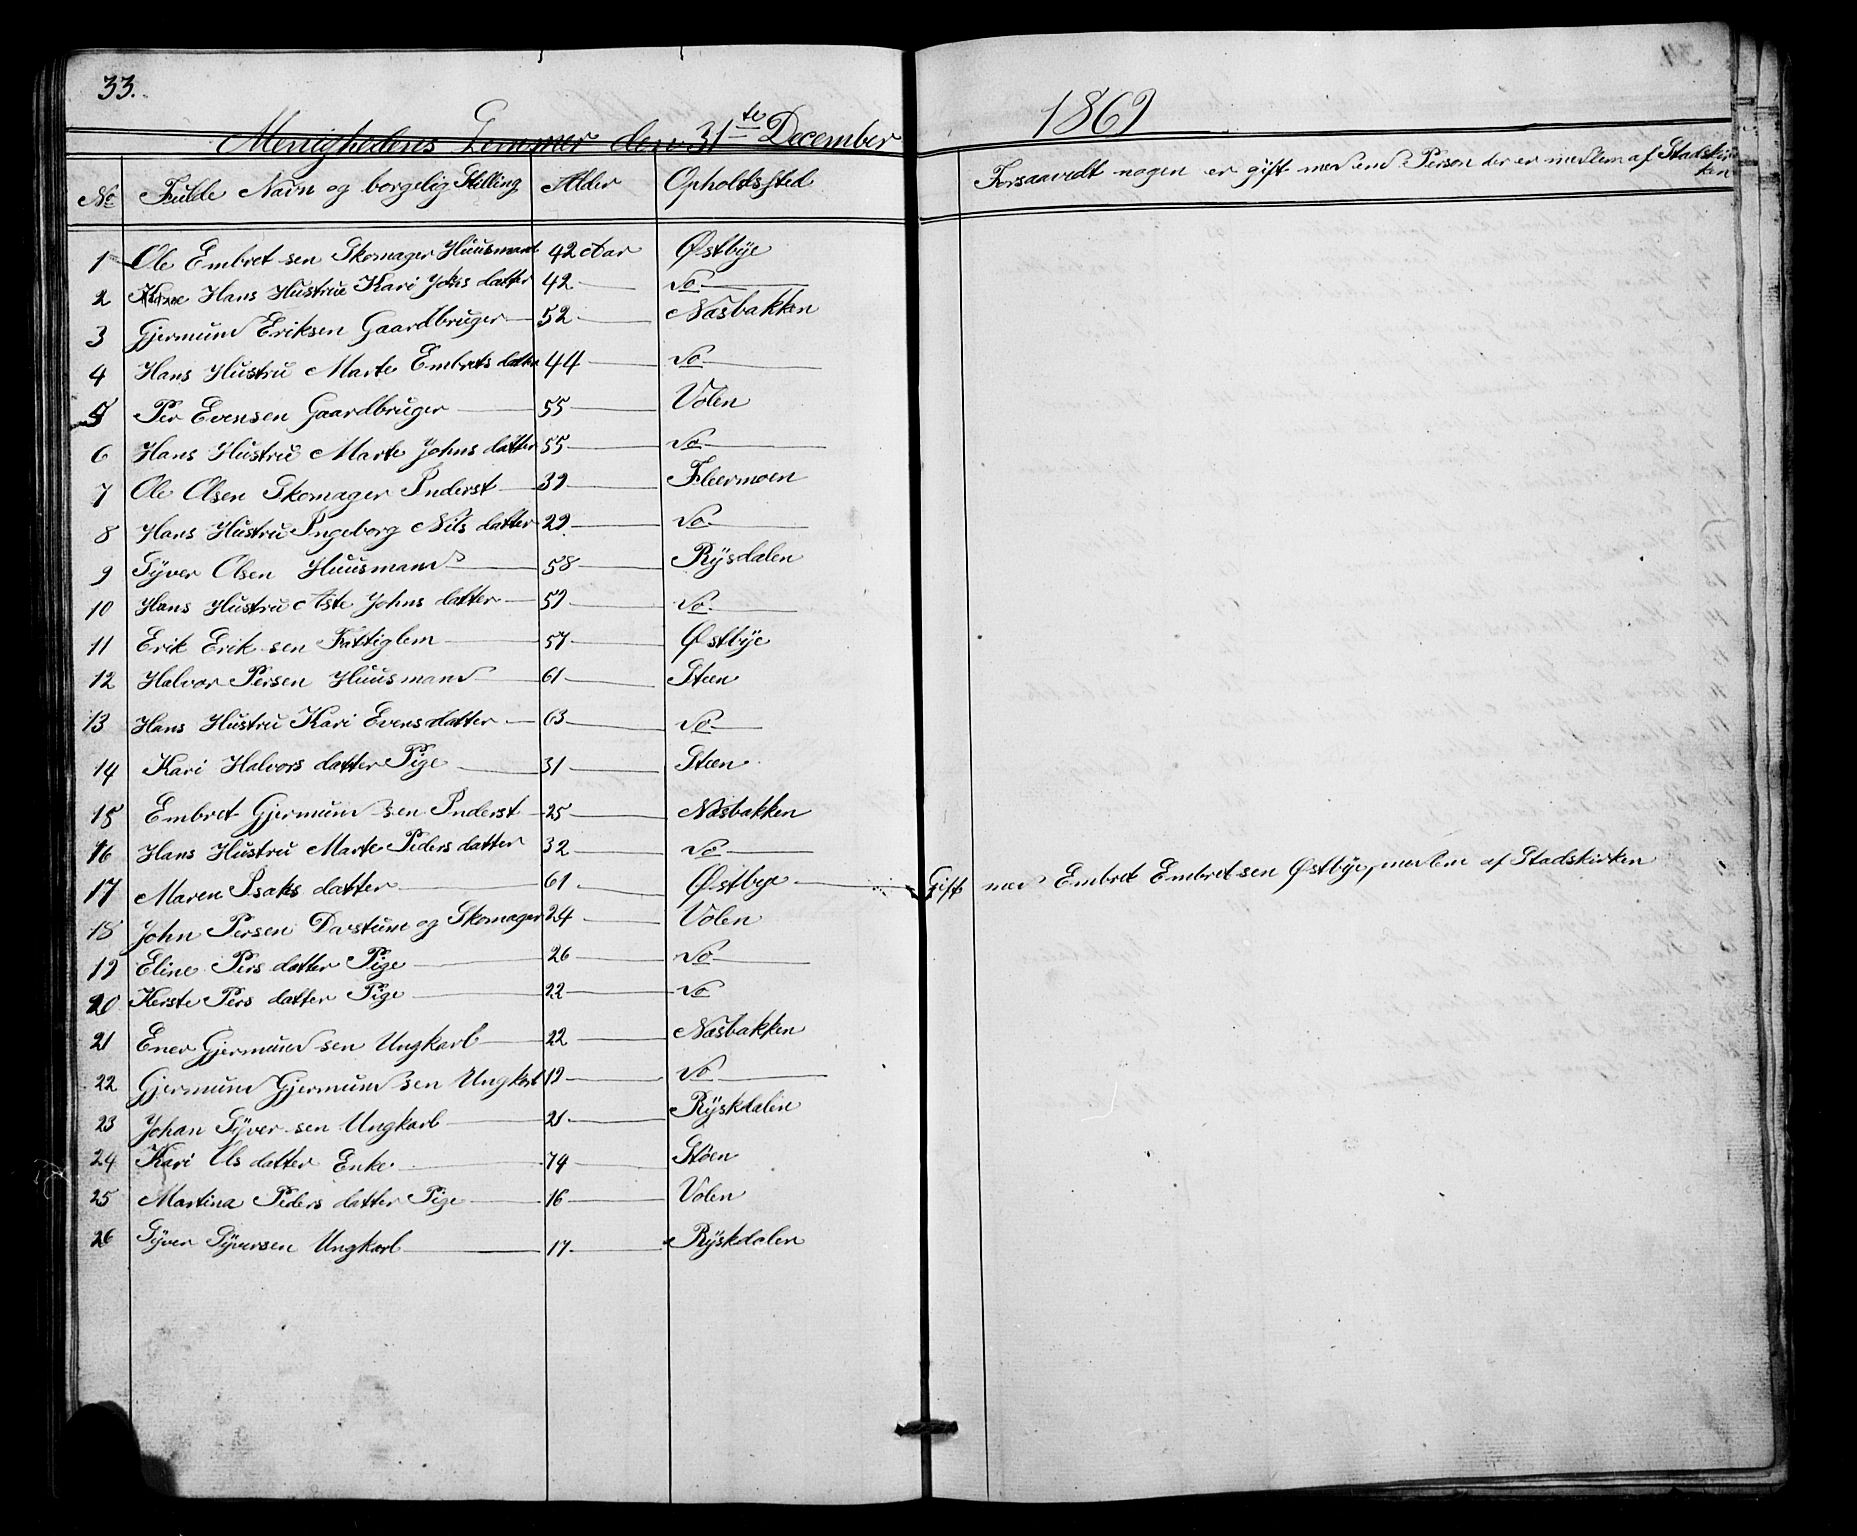 33.
Menighedens Lemmer den 31te December 1869
No Fulde Navn og borgelig Stilling Alder Opholdssted Forsaavedt nogen er gift med en Person der er medlem af Stadskir
ken
1 Ole Embret sen Skomager Huusmand 42 Aar Østbye
2 Hans Hustrue Kari Johs datter 42 Do
3 Gjermund Eriksen Gaardbruger 52 Næsbakken
4 Hans Hustru Marte Embrets datter 44 Do
5 Per Evensen Gaardbruger 55 Volen
6 Hans Hustru Marte Johns datter 55 Do
7 Ole Olsen Skomager Inderst 39 Flermoen
8 Hans Hustru Ingeborg Nils datter 29 Do
9 Syver Olsen Huusmand 58 Rysdalen
10 Hans Hustru Aste Johns datter 59 Do
11 Erik Erik sen Fattiglem 57 Østbye
12 Halvor Persen Huusmand 61 Støen
13 Hans Hustru Kari Evens datter 63 Do
14 Kari Halvors datter Pige 31 Støen
15 Embret Gjermund sen Inderst 25 Næsbakken
16 Hans Hustru Marte Peders datter 32 Do
17 Maren Isaks datter 61 Østbye Gift med Embret Embret sen Østbye, medlem af Stadskirken
18 John Persen og Skomager 24 Volen
19 Eline Pers datter Pige 26 Do
20 Kerste Pers datter Pige 22 Do
21 Ener Gjermund sen Ungkarl 22 Næsbakken
22 Gjermund Gjermund sen Ungkarl 19 Do
23 Johan Syver sen Ungkarl 21 Ryskdalen
24 Kari Ols datter Enke 74 Støen
25 Martina Peders datter Pige 16 Volen
26 Syver Syversen Ungkarl 17 Ryskdalen